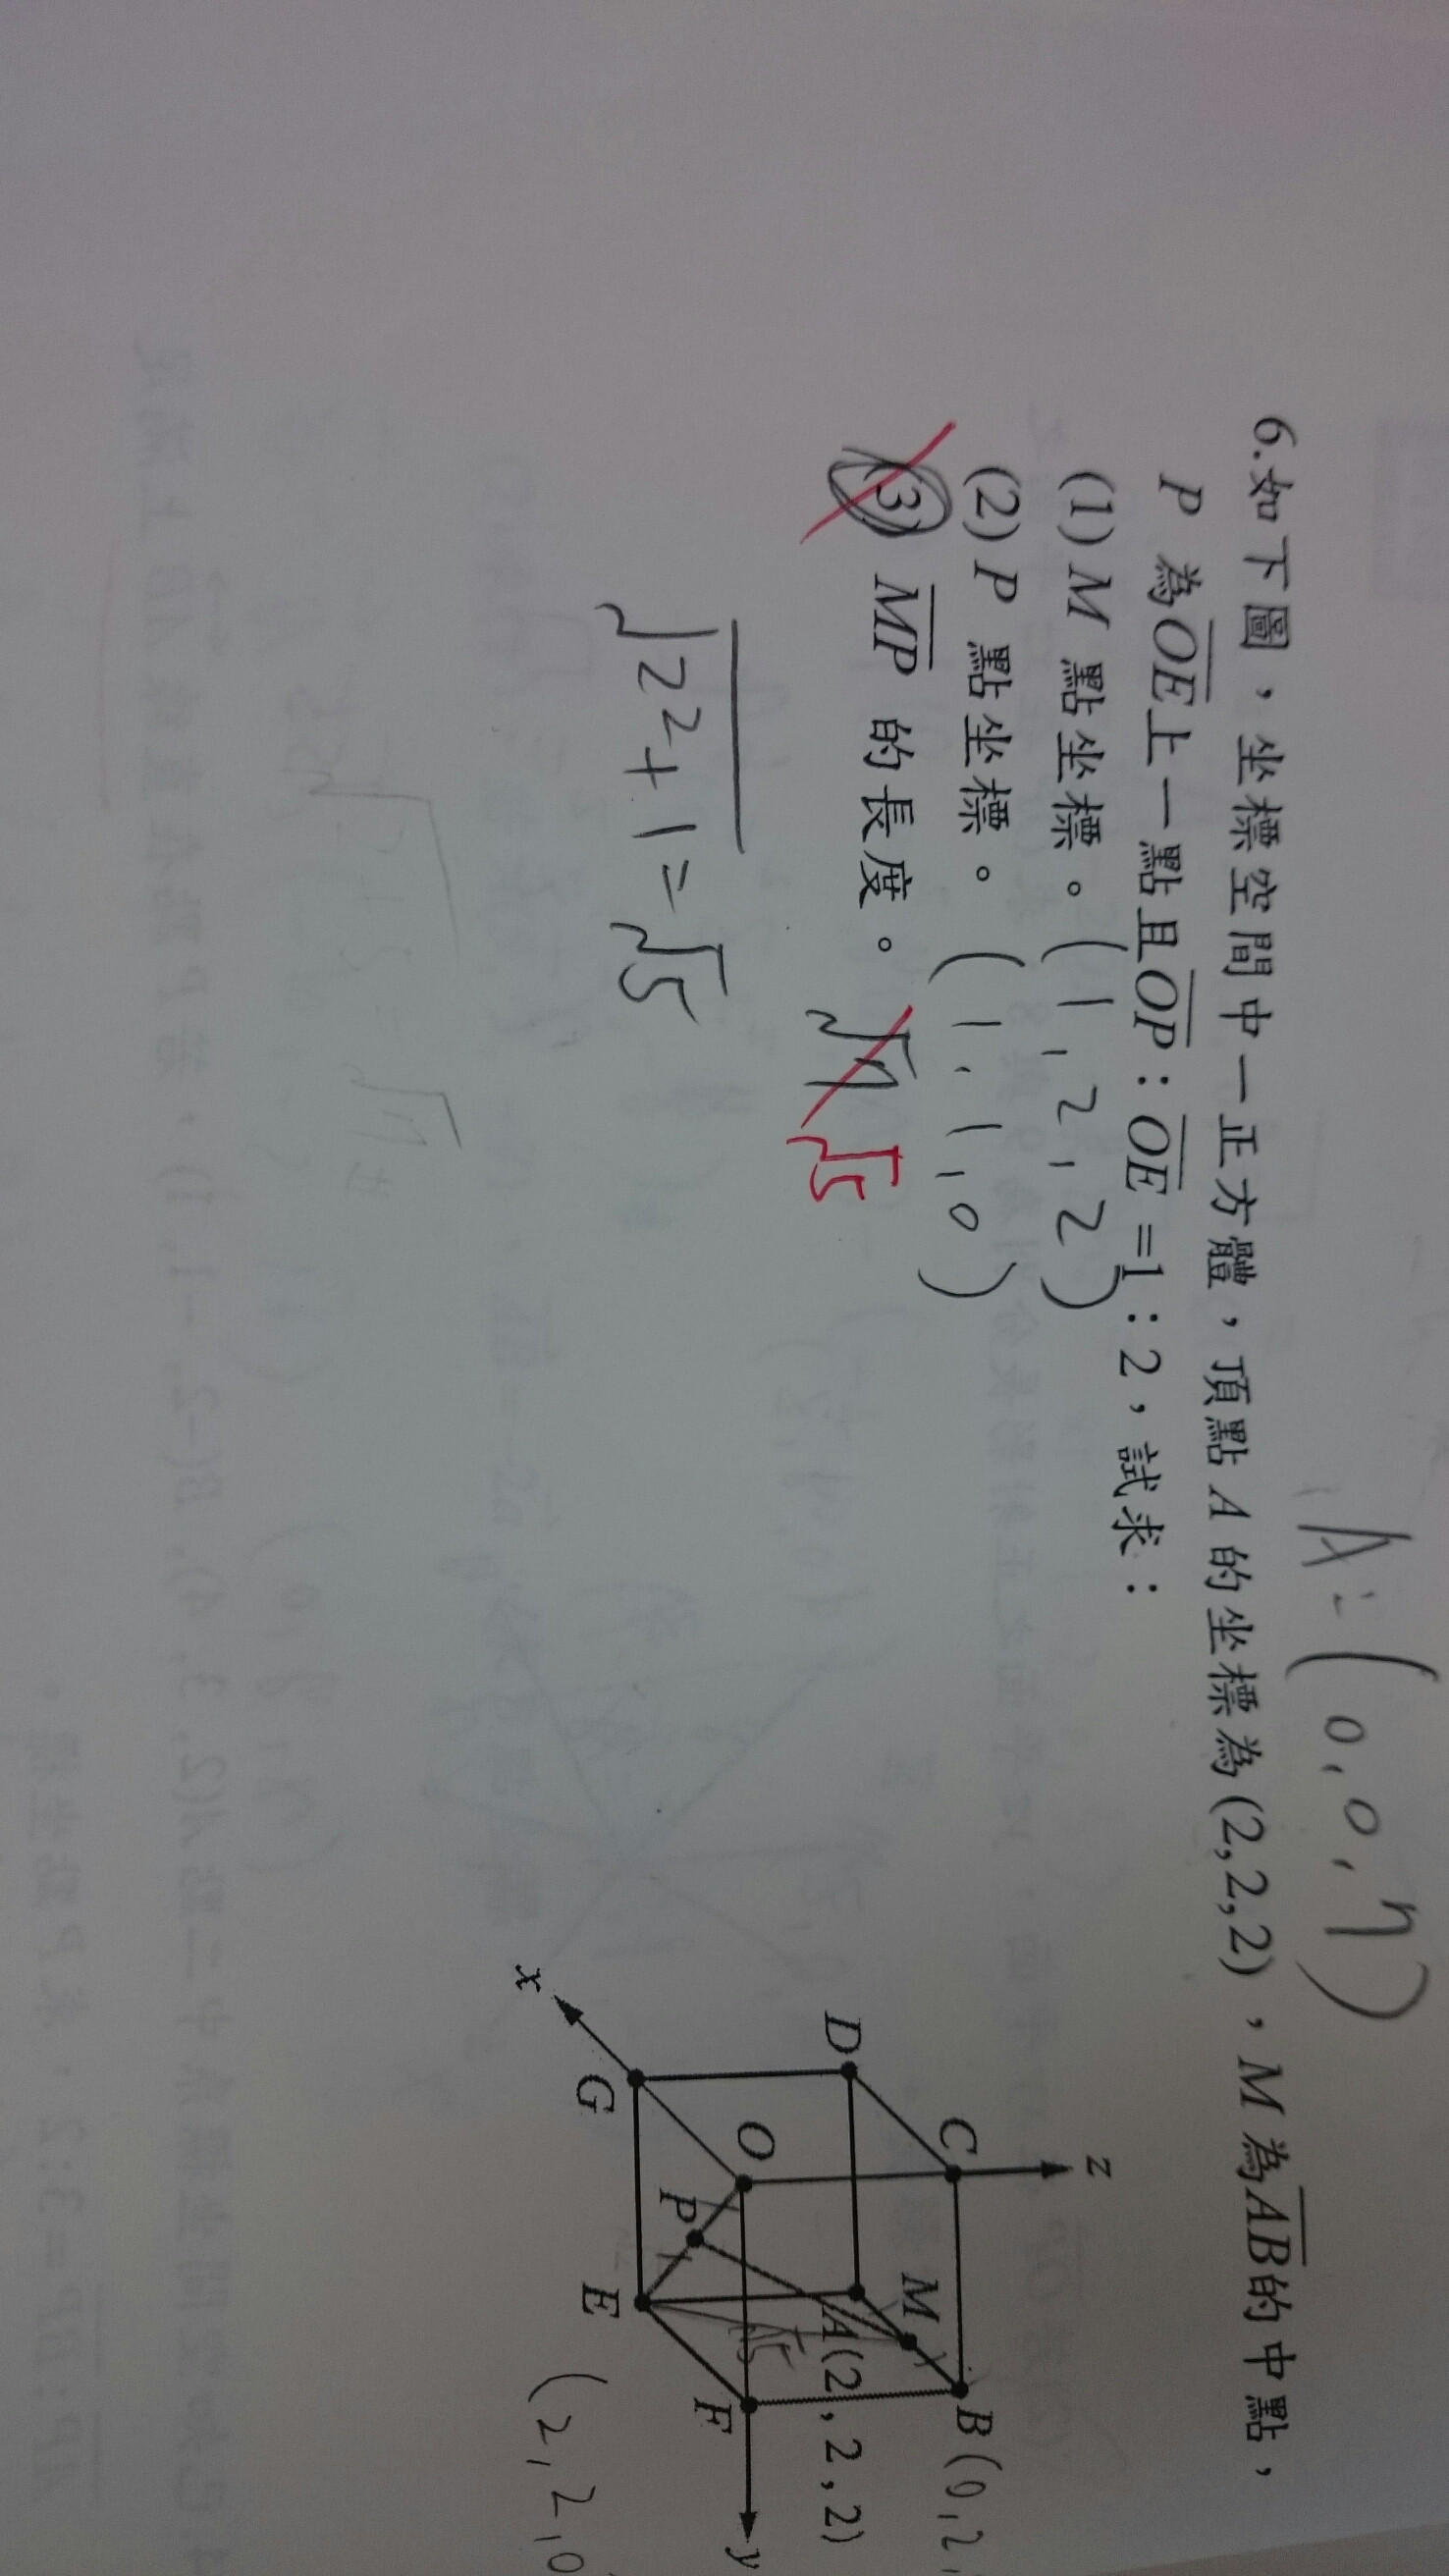 A:(0,0,
6.如下圖，坐標空間中一正方體，頂點 A 的坐標為(2,2,2)，M 為AB的中點，
P 為OE上一點且OP：OE=1：2，試求：
(1) M 點坐標。(1,2,2)
(2) P 點坐標。(1,1,0)
(3) MP 的長度。 √5
√2²+1=√5
z
C
B(0,2,
D
M
A(2,2,2)
O
P
√5
F
y
G
E
x
(2,2,0